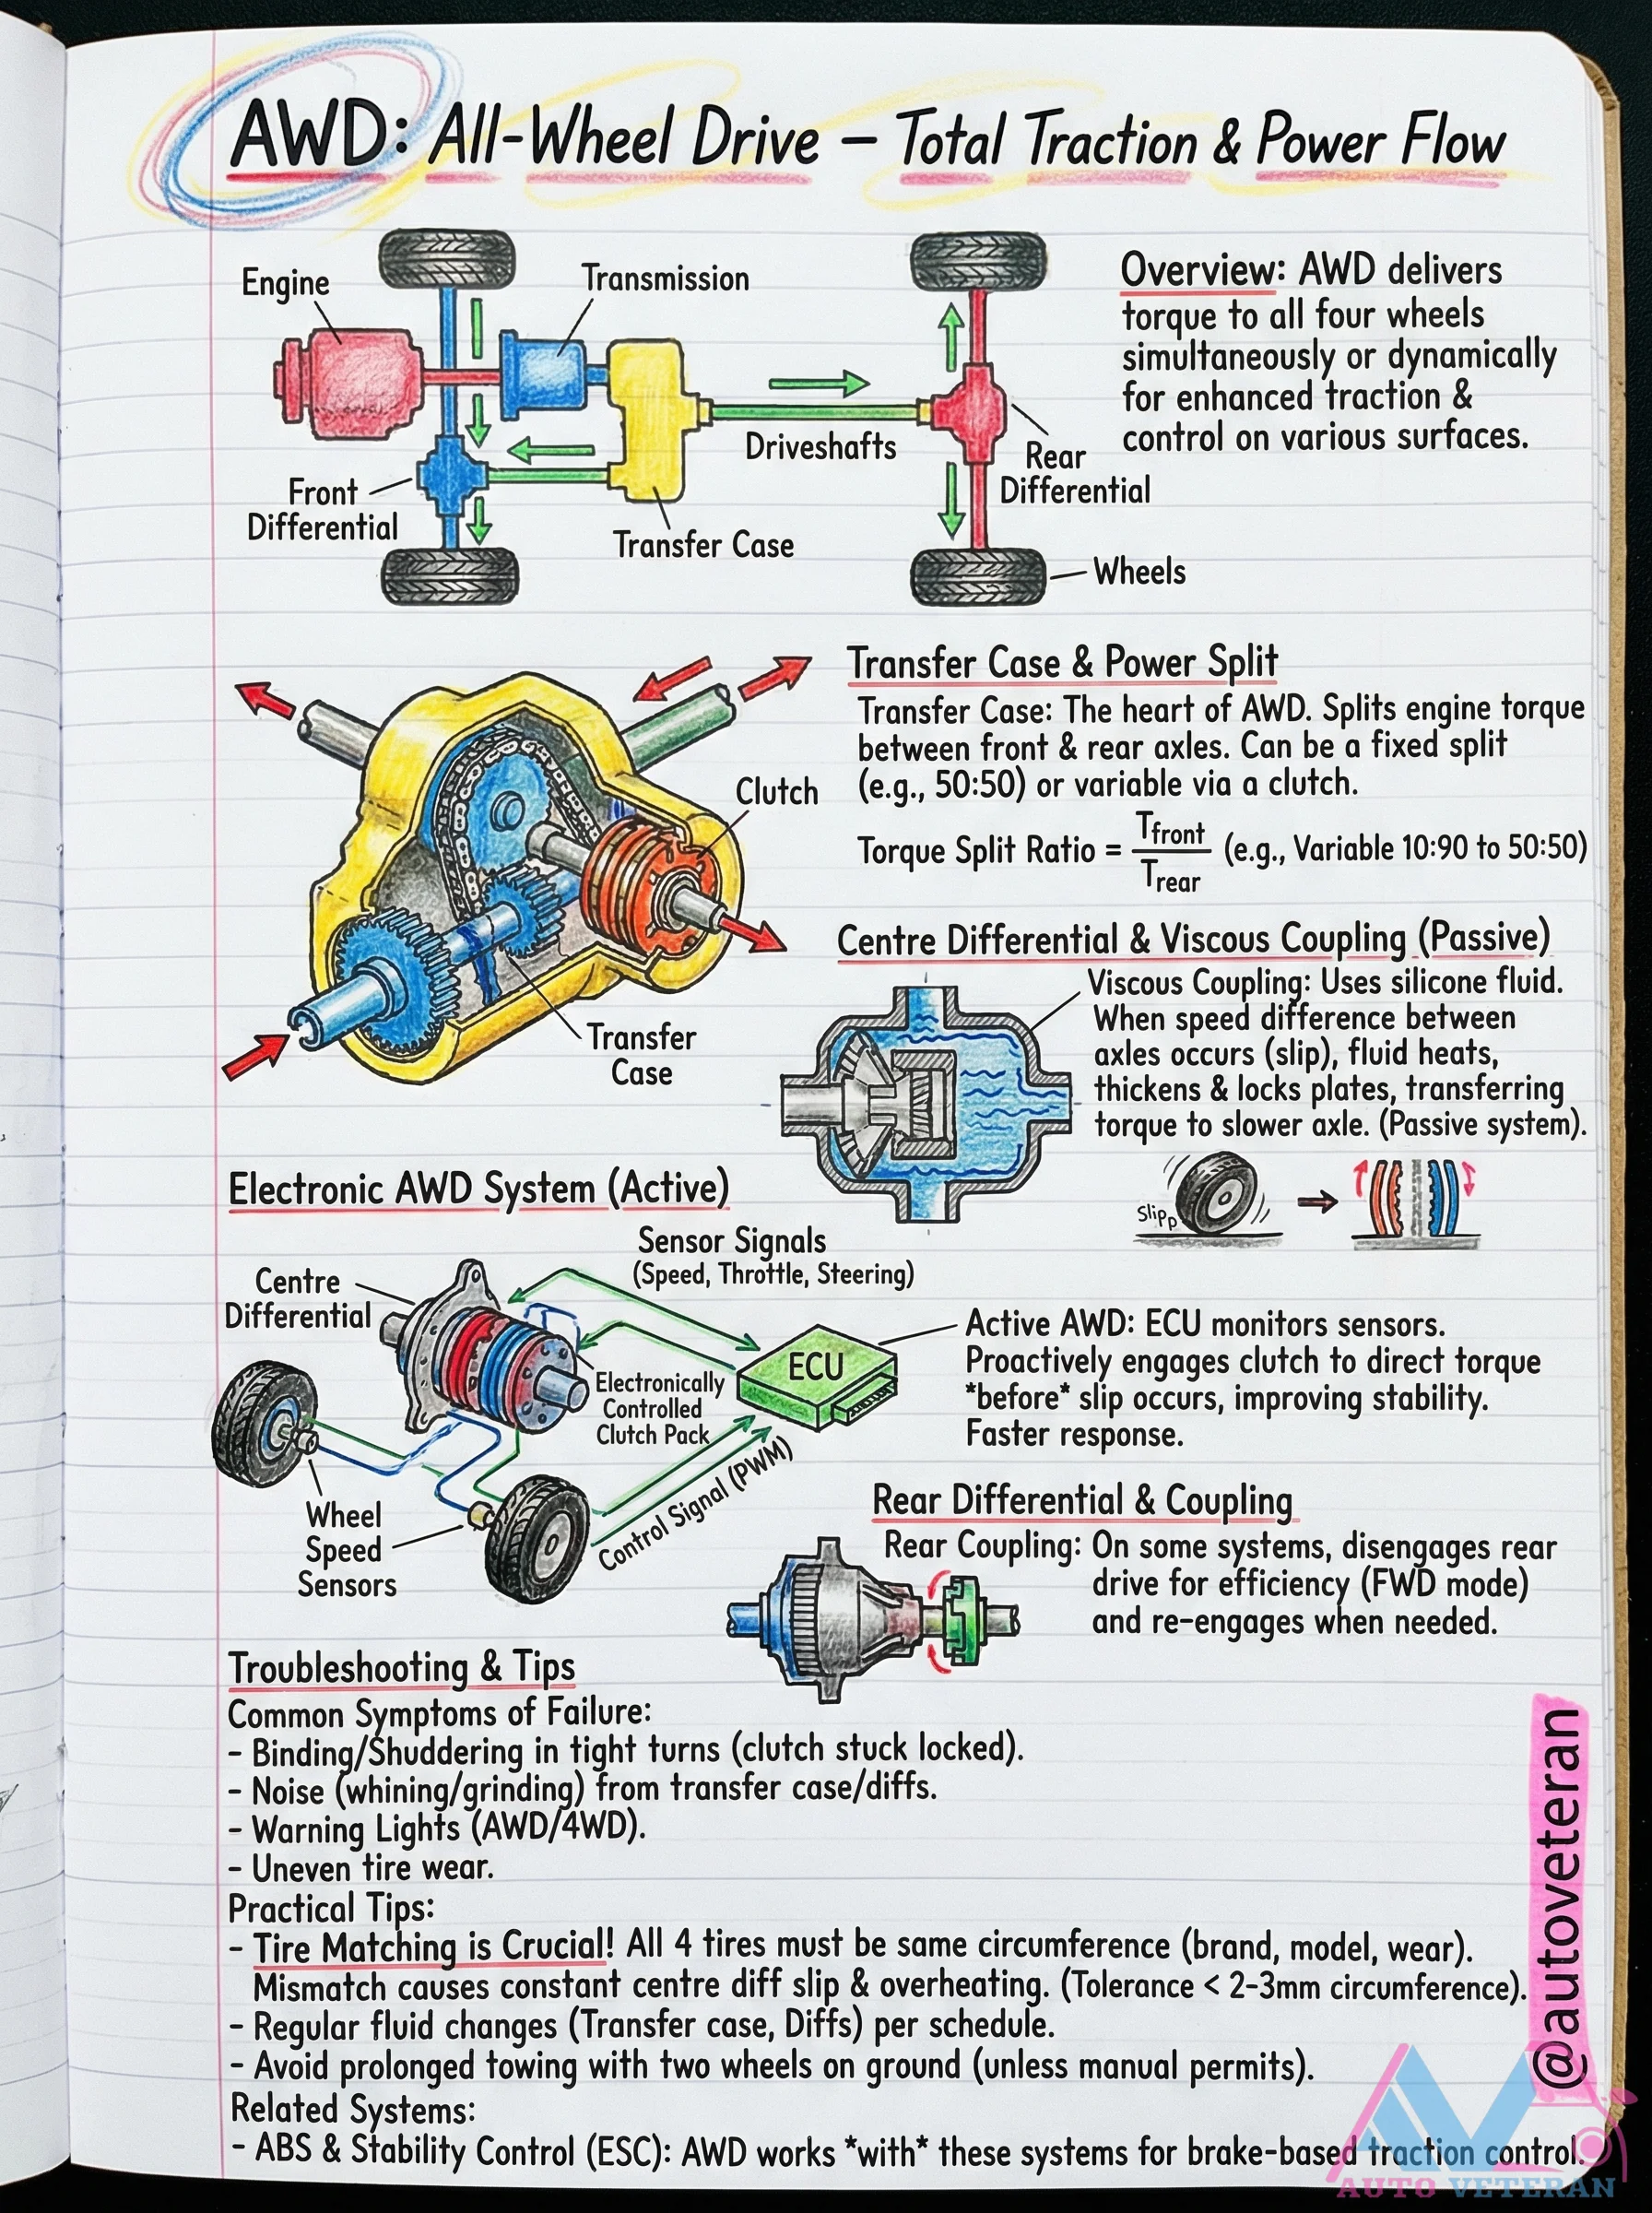 AWD: All-Wheel Drive – Total Traction & Power Flow
Engine
Transmission
Driveshafts
Front
Differential
Transfer Case
Rear
Differential
Wheels
Overview: AWD delivers
torque to all four wheels
simultaneously or dynamically
for enhanced traction &
control on various surfaces.
Clutch
Transfer
Case
Transfer Case & Power Split
Transfer Case: The heart of AWD. Splits engine torque
between front & rear axles. Can be a fixed split
(e.g., 50:50) or variable via a clutch.
Torque Split Ratio = Tfront / Trear (e.g., Variable 10:90 to 50:50)
Centre Differential & Viscous Coupling (Passive)
Viscous Coupling: Uses silicone fluid.
When speed difference between
axles occurs (slip), fluid heats,
thickens & locks plates, transferring
torque to slower axle. (Passive system).
Slipp
Electronic AWD System (Active)
Sensor Signals
(Speed, Throttle, Steering)
Centre
Differential
ECU
Electronically
Controlled
Clutch Pack
Control Signal (PWM)
Wheel
Speed
Sensors
Active AWD: ECU monitors sensors.
Proactively engages clutch to direct torque
*before* slip occurs, improving stability.
Faster response.
Rear Differential & Coupling
Rear Coupling: On some systems, disengages rear
drive for efficiency (FWD mode)
and re-engages when needed.
Troubleshooting & Tips
Common Symptoms of Failure:
- Binding/Shuddering in tight turns (clutch stuck locked).
- Noise (whining/grinding) from transfer case/diffs.
- Warning Lights (AWD/4WD).
- Uneven tire wear.
Practical Tips:
- Tire Matching is Crucial! All 4 tires must be same circumference (brand, model, wear).
Mismatch causes constant centre diff slip & overheating. (Tolerance < 2-3mm circumference).
- Regular fluid changes (Transfer case, Diffs) per schedule.
- Avoid prolonged towing with two wheels on ground (unless manual permits).
Related Systems:
- ABS & Stability Control (ESC): AWD works *with* these systems for brake-based traction control.
@autoveteran
AUTO VETERAN